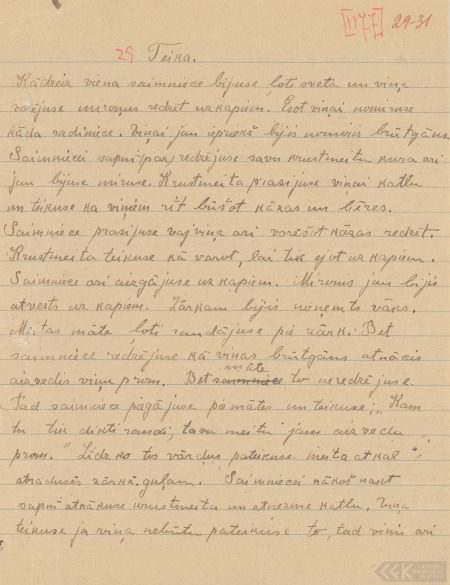 1177 29-31
29 Teika.
Kādreiz viena saimniece bijuse ļoti sveta un viņa
varējuse miroņus redzēt uz kapiem. Esot viņai nomiruse
kāda radiniece. Viņai jau iepriekš bijis nomiris brūtgāns.
Saimnieci sapnī par redzējuse savu krustmeitu kura ari
jau bijuse miruse. Krustmeita prasijuse viņai katlu
un teikuse ka viņiem rīt būšot kāzas un bēres.
Saimniece prasijuse vaj viņa ari varēšot kāzas redzēt.
Krustmeita teikuse kā varot, lai tik ejot uz kapiem.
Saimniece ari aizgājuse uz kapiem. Mironis jau bijis
atvests uz kapiem. Zārkam bijis noņemts vāks.
Meitas māte ļoti raudājuse pie zārk. Bet
saimniece redzējuse kā viņas brūtgāns atnācis
aizvedis viņu prom. Bet saimniece māte to neredzējuse.
Tad saimniece piegājuse pie mātes un teikuse; "Kam
tu tik dikti raudi, tavu meitu jam aizvedu
prom." Līdz ko tos vārdus pateikuse meita atkal
atradusēs zārkā guļam. Saimniecei nākošā naktī
sapnī atnākuse krustmeita un atnesuse katlu. Viņa
teikuse ja viņa nebūtu pateikuse to, tad viņi ari